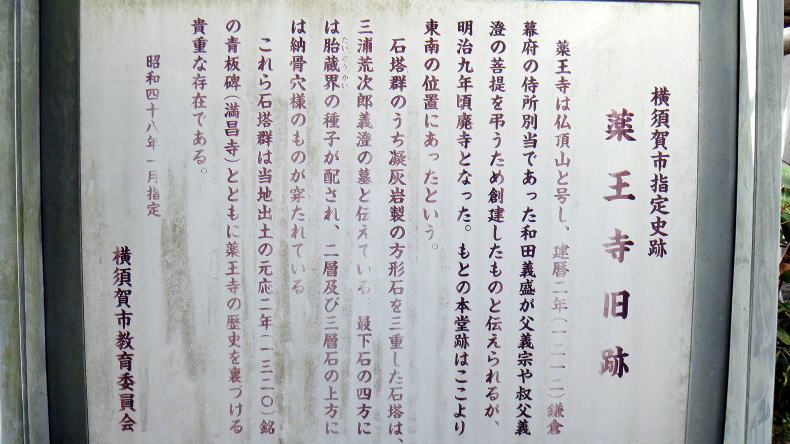 横須賀市指定史跡
薬王寺旧跡
薬王寺は仏頂山と号し、建暦二年(一二一二)鎌倉
幕府の侍所別当であった和田義盛が父義宗や叔父義
澄の菩提を弔うため創建したものと伝えられるが、
明治九年頃廃寺となった。もとの本堂跡はここより
東南の位置にあったという。
石塔群のうち凝灰岩製の方形石を三重した石塔は、
三浦荒次郎義澄の墓と伝えている 最下石の四方に
は胎蔵界の種子が配され、二層及び三層石の上方に
たいぞうかい
は納骨穴様のものが穿たれている
これら石塔群は当地出土の元応二年(一三二〇)銘
の青板碑(満昌寺)とともに薬王寺の歴史を裏づける
貴重な存在である。
昭和四十八年一月指定
横須賀市教育委員会